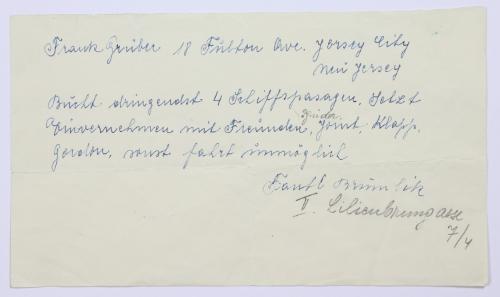 Frank Gruber 18 Fulton Ave. Jersey City
New Jersey
Bucht dringendst 4 Schiffspasagen, Setzt
Einvernehmen mit Freunden, Joint, Klapp,
Gordon, sonst fahrt unmöglich
Brumlik
II. Lilienbrungasse
7/4